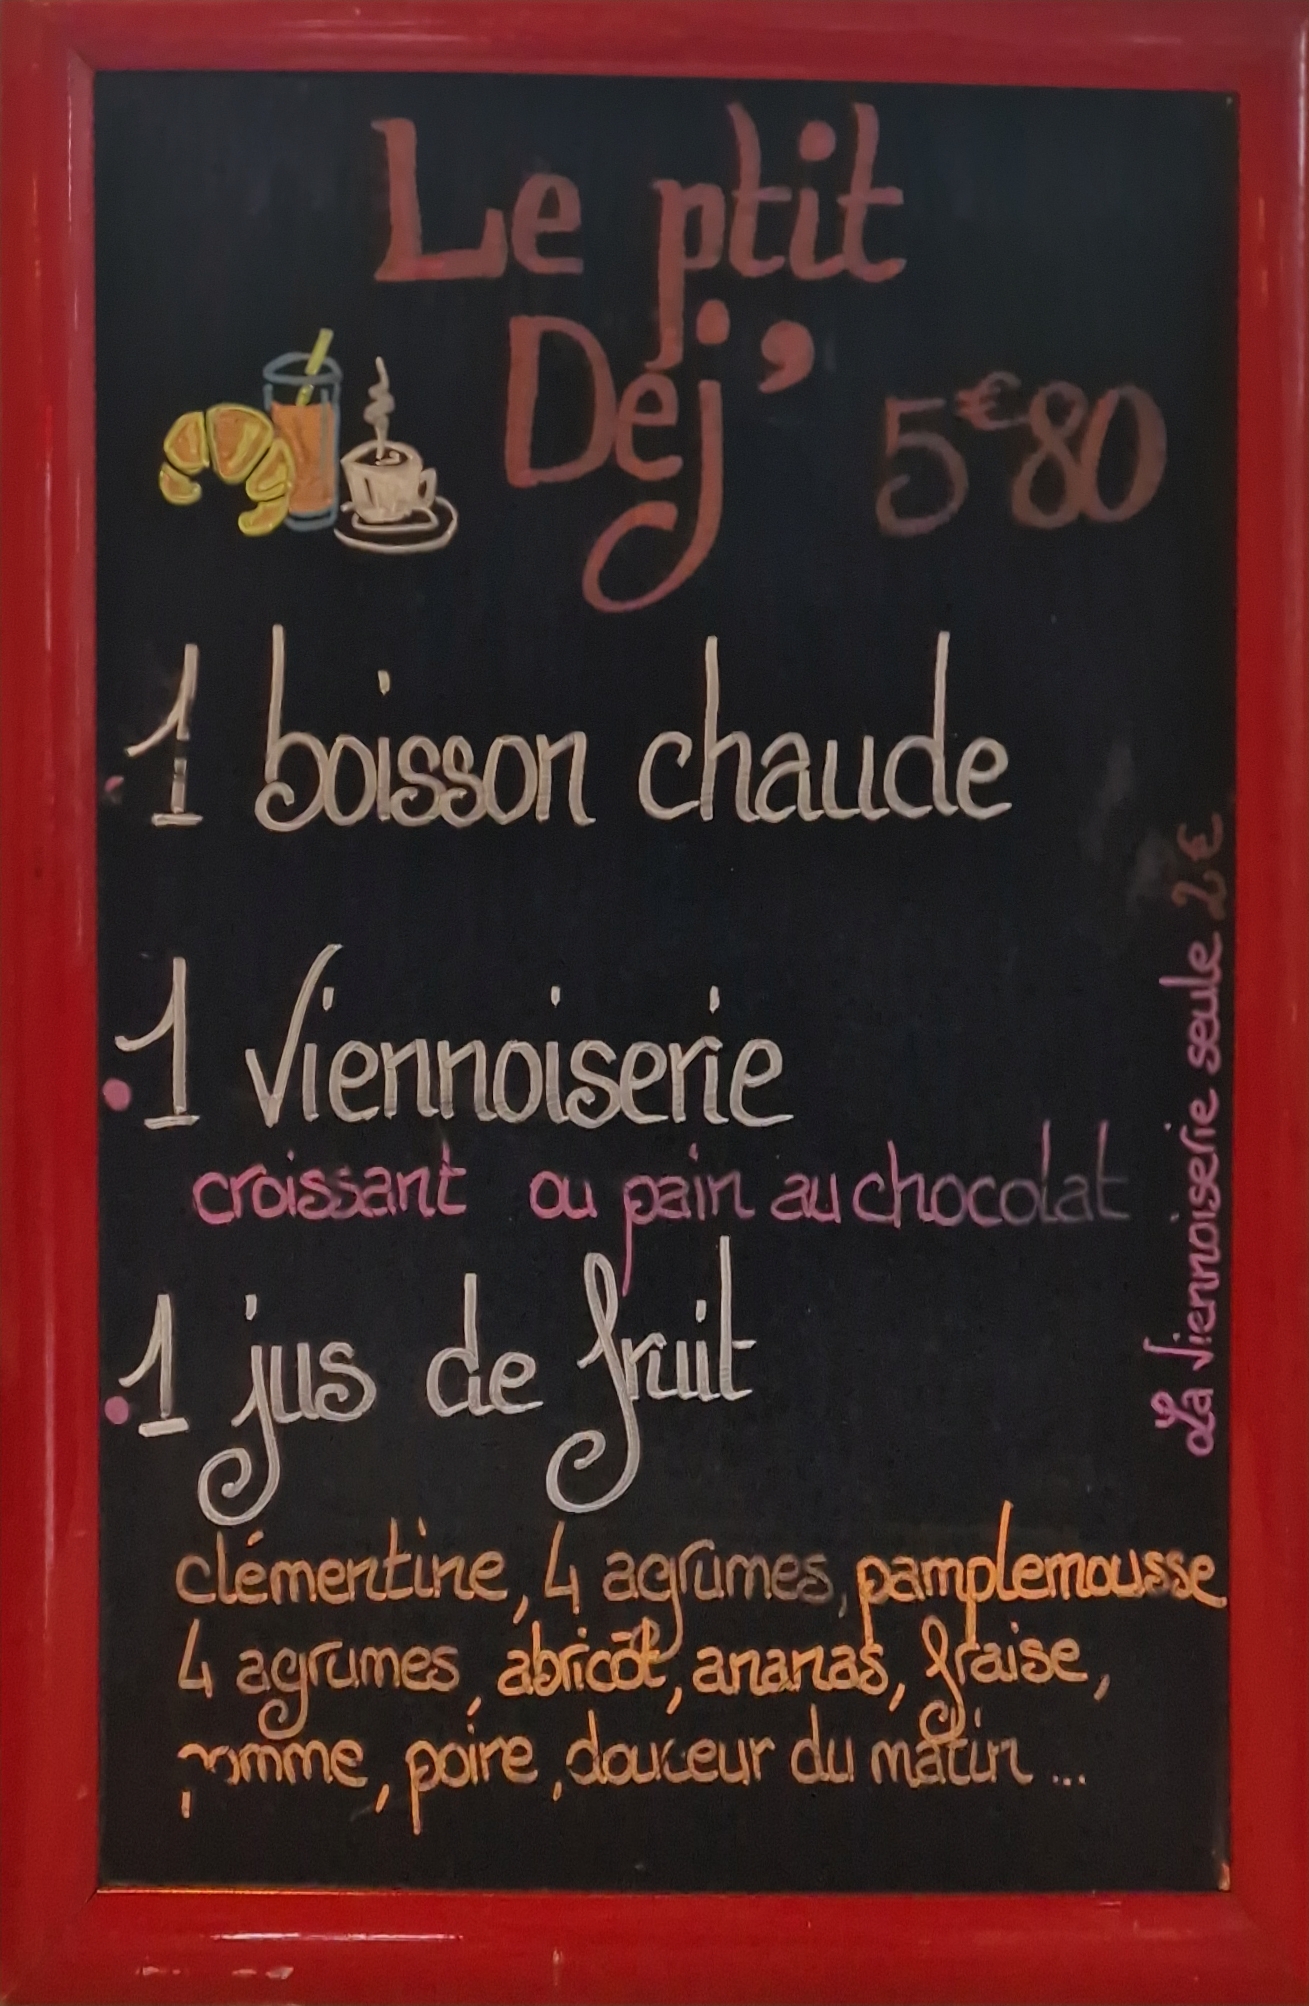 Le ptit
Déj'
5€80
1 boisson chaude
1 Viennoiserie
croissant ou pain au chocolat
1 jus de fruit
clémentine, 4 agrumes, pamplemousse
4 agrumes, abricot, ananas, fraise,
pomme, poire, douceur du matin ...
La Viennoiserie seule 2€